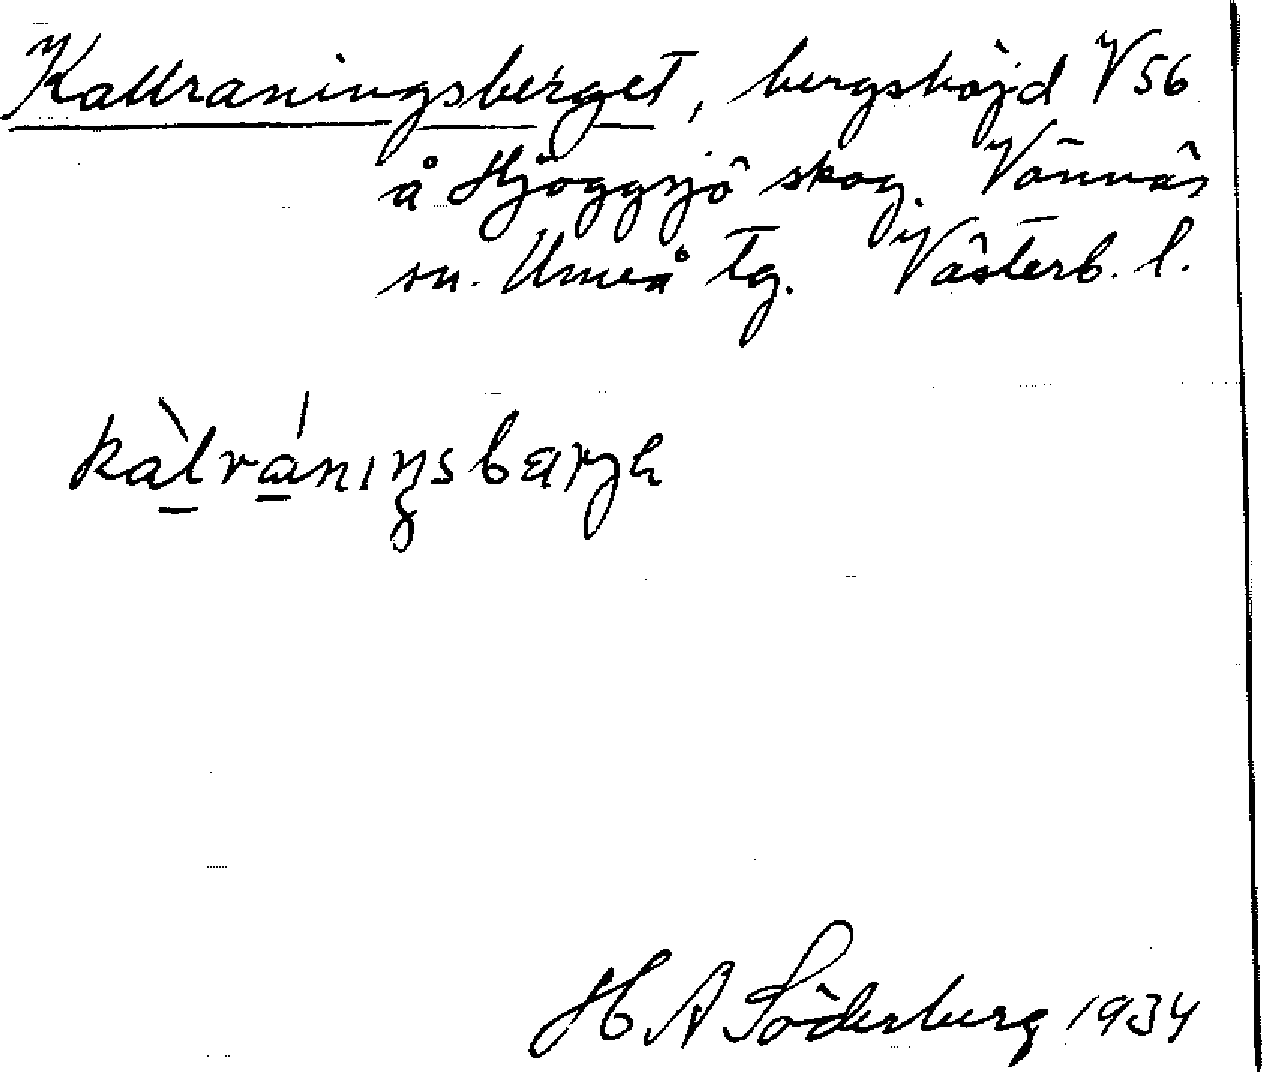 Kallraningsberget, bergshöjd V 56
å Hjöggsjö skog. Vännäs
sn. Umeå tg. Västerb. l.
kàlrániŋsbærgɛ
H A Söderberg 1934